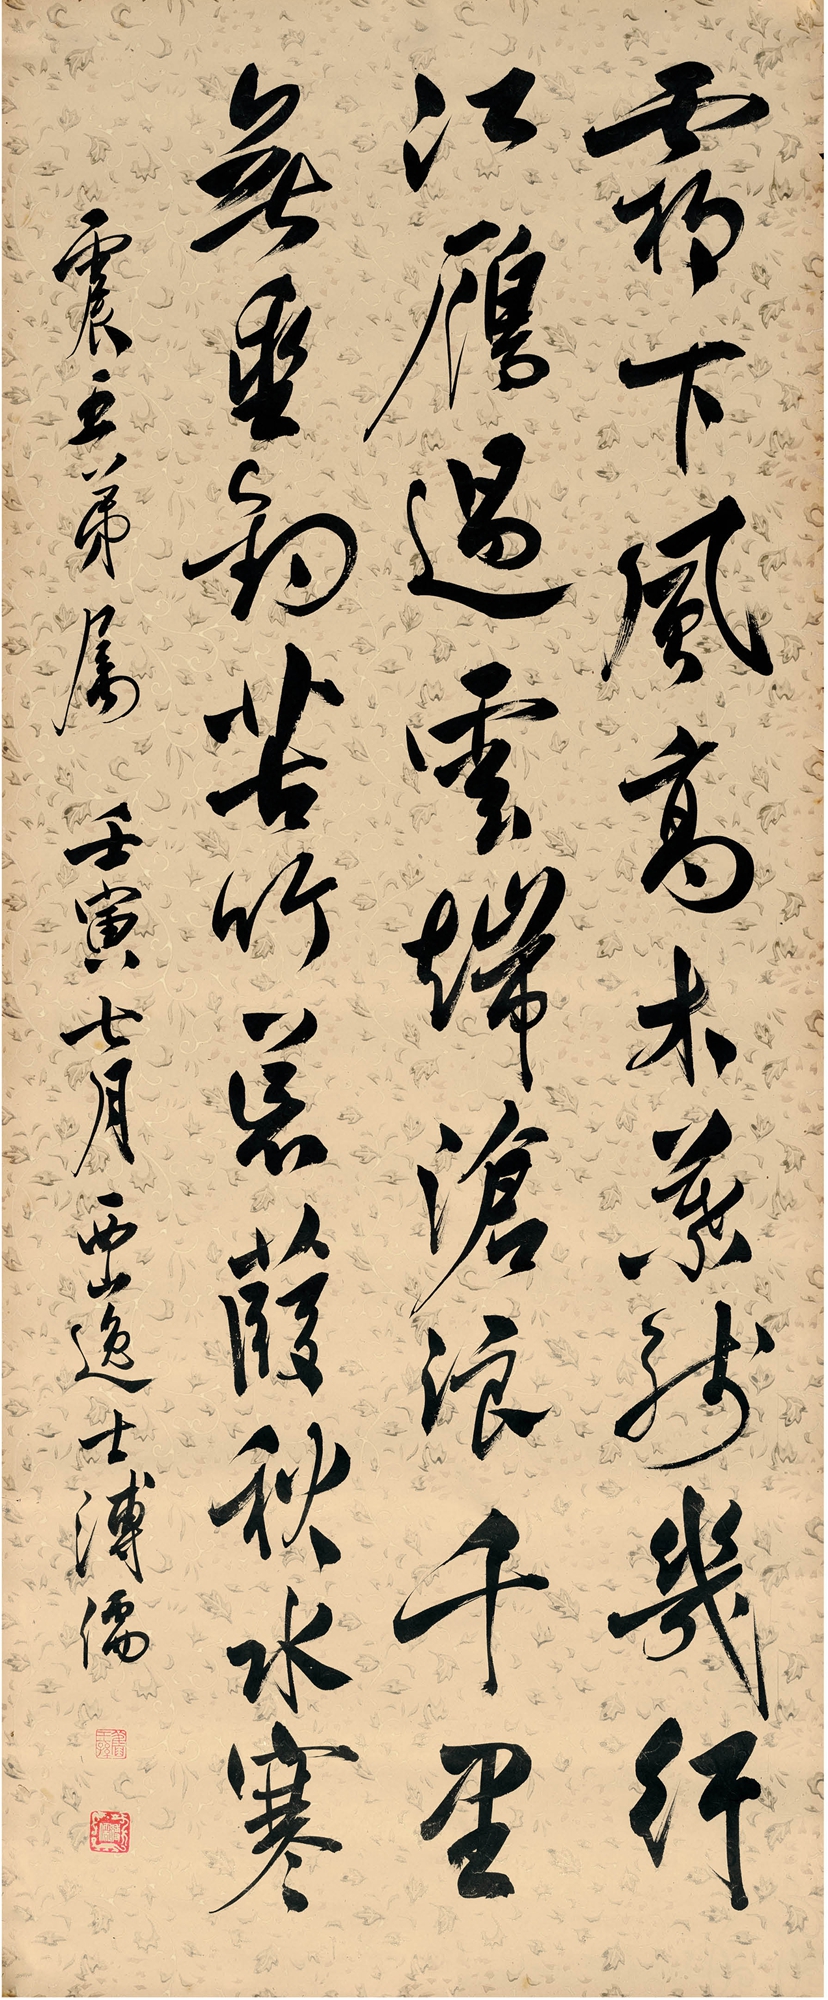 霜下風高木葉殘幾行
江鴈過雲端滄浪千里
無垂釣苦竹荒葭秋水寒
震五弟屬 壬寅七月西山逸士溥儒